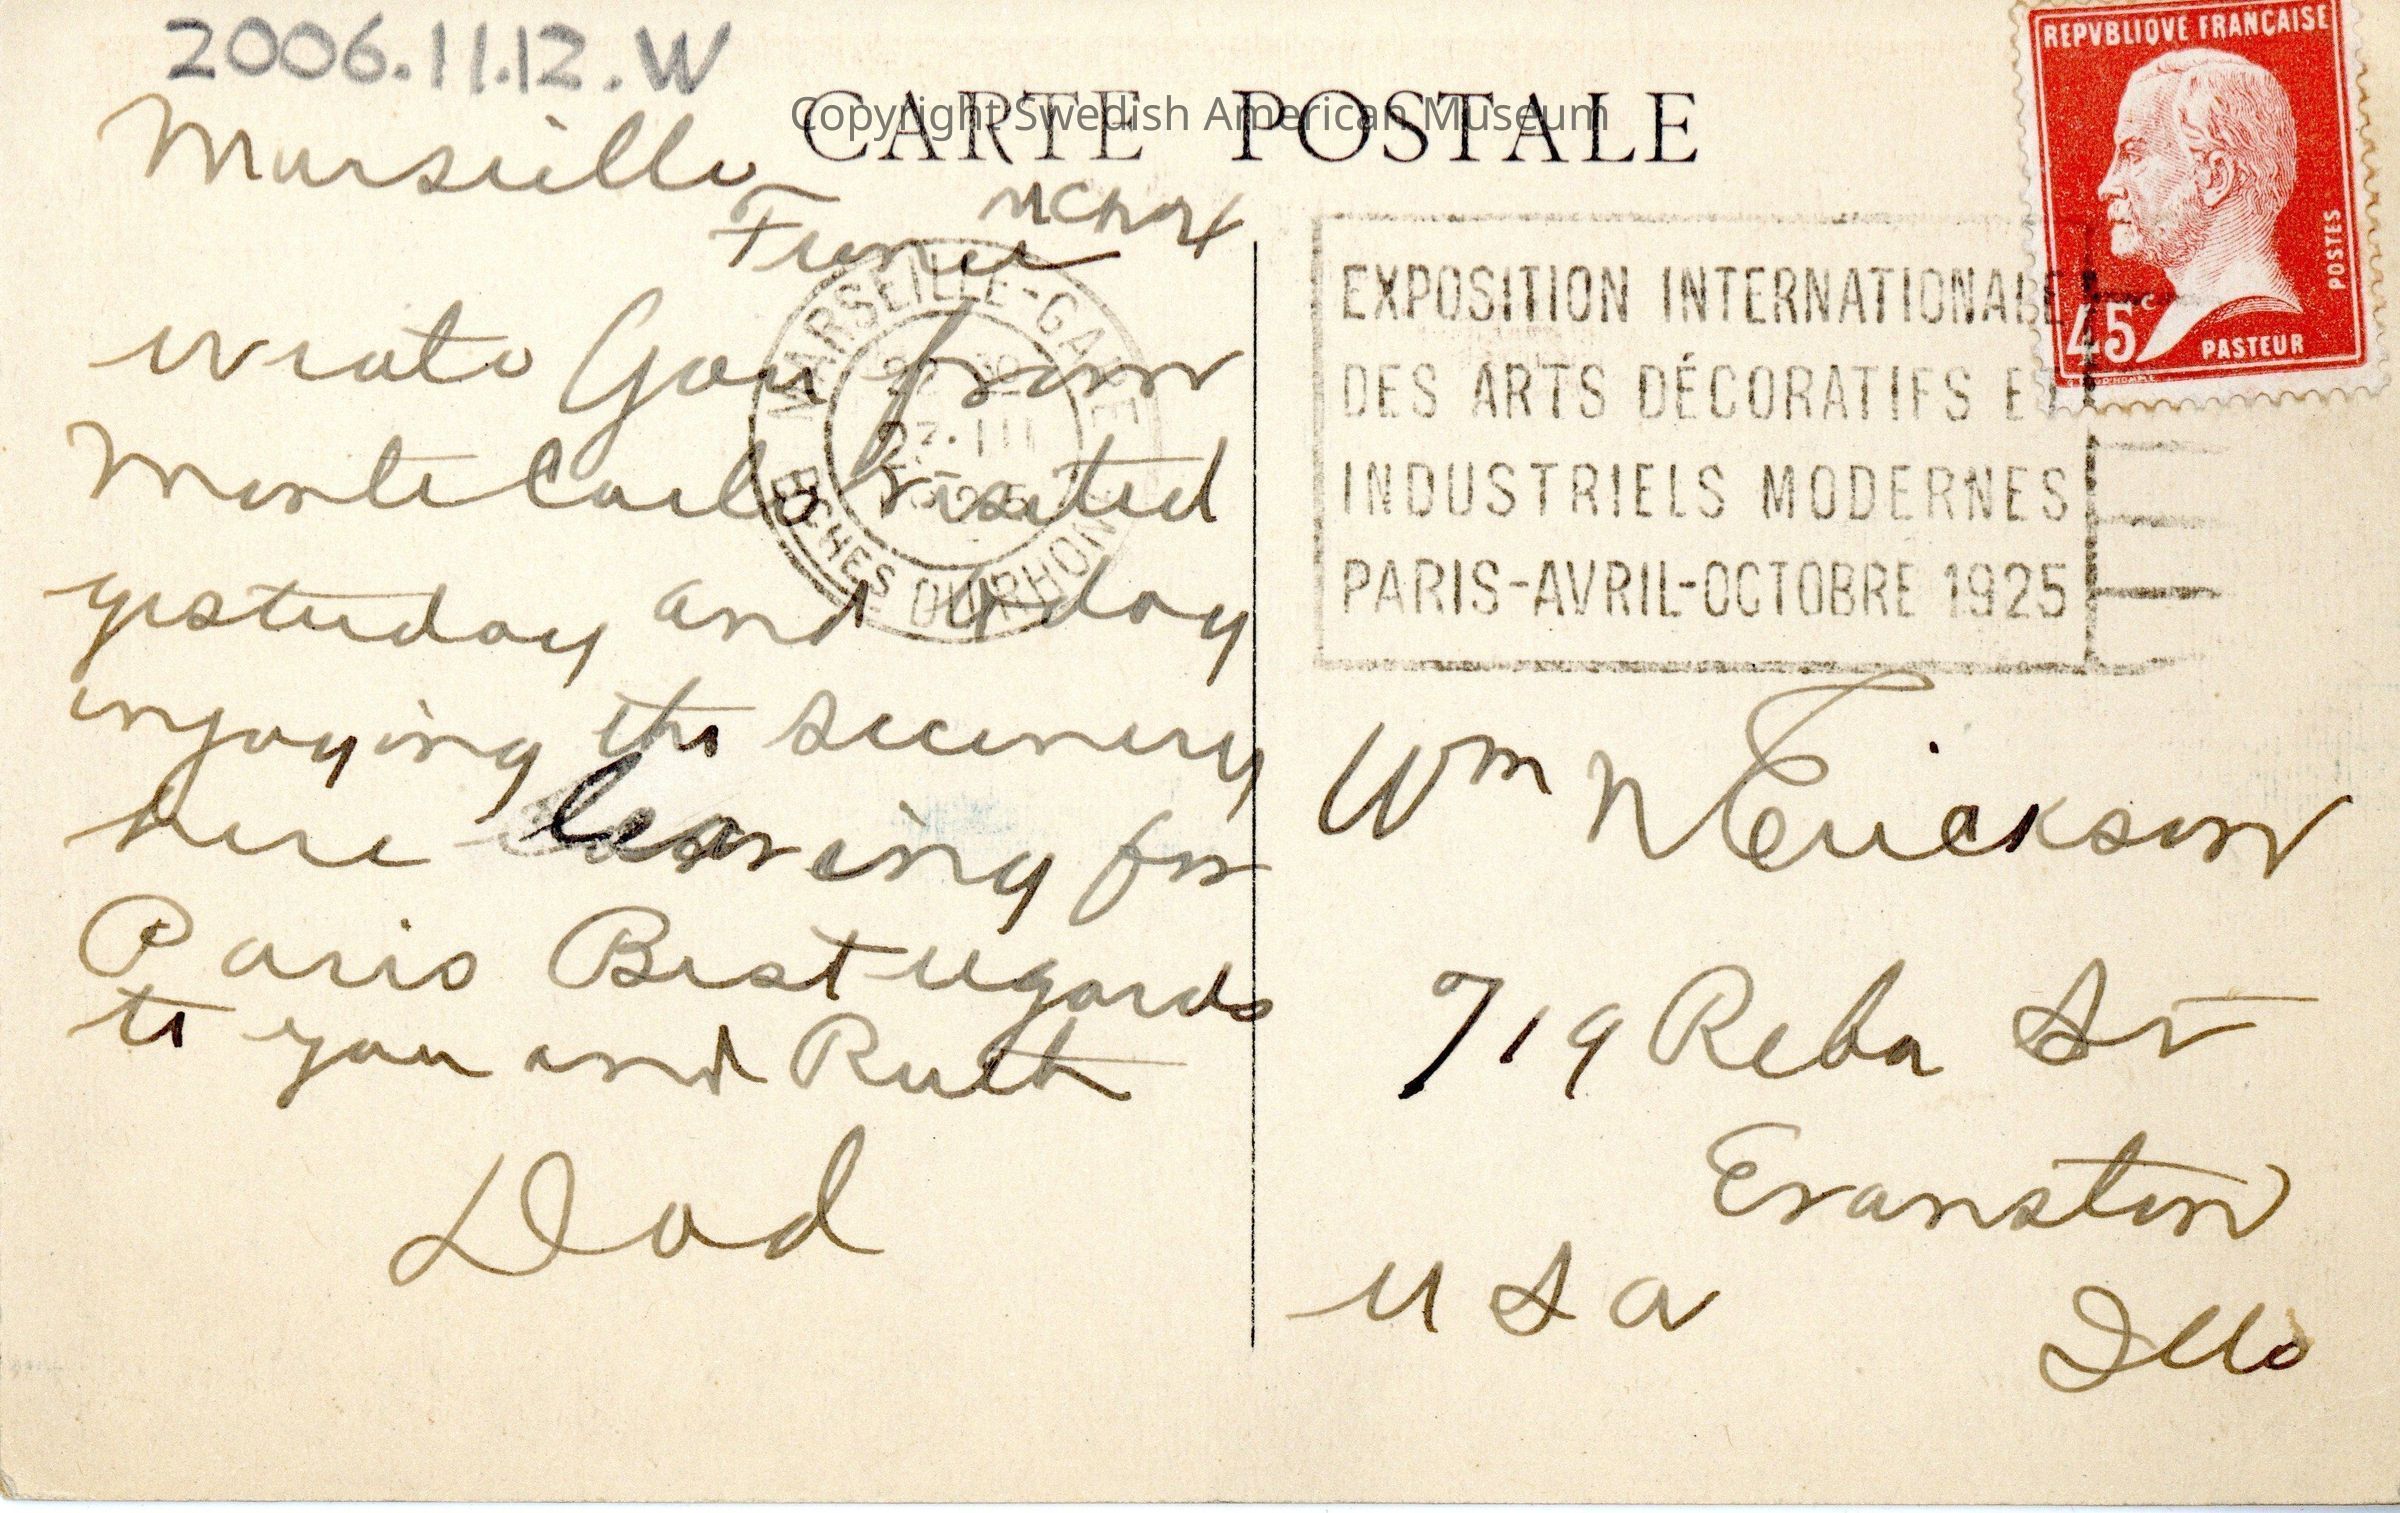 2006.11.12.W
CARTE POSTALE
Copyright Swedish American Museum
Marseille
France
wrote you from
Monte Carlo visited
yesterday and today
injoying the scenery
here leaving for
Paris Best regards
to you and Ruth
Dad
MARSEILLE-GARE
BCHES DU RHONE
1925
EXPOSITION INTERNATIONALE
DES ARTS DÉCORATIFS ET
INDUSTRIELS MODERNES
PARIS-AVRIL-OCTOBRE 1925
REPVBLIQVE FRANCAISE
POSTES
45c
PASTEUR
Wm N Erickson
719 Reba St
Evanston
U S A
Ills